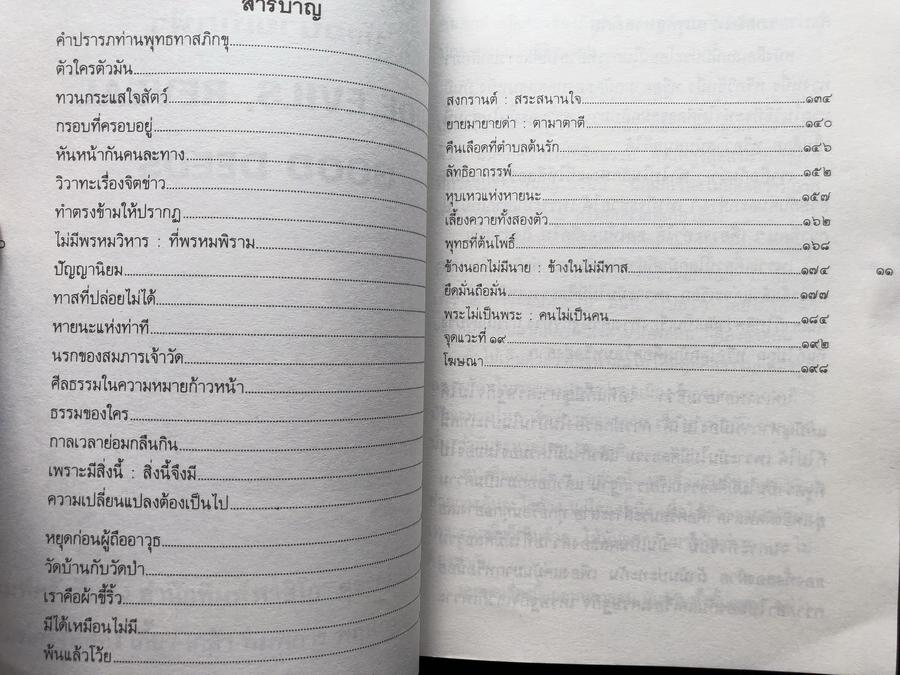 สารบาญ
คำปรารภท่านพุทธทาสภิกขุ
ตัวใครตัวมัน
ทวนกระแสใจสัตว์
กรอบที่ครอบอยู่
หันหน้ากันคนละทาง
วิวาทะเรื่องจิตข่าว
ทำตรงข้ามให้ปรากฏ
ไม่มีพรหมวิหาร : ที่พรหมพิราม
ปัญญานิยม
ทาสที่ปล่อยไม่ได้
หายนะแห่งท่าที
นรกของสมภารเจ้าวัด
ศีลธรรมในความหมายก้าวหน้า
ธรรมของใคร
กาลเวลาย่อมกลืนกิน
เพราะมีสิ่งนี้ : สิ่งนี้จึงมี
ความเปลี่ยนแปลงต้องเป็นไป
หยุดก่อนผู้ถืออาวุธ
วัดบ้านกับวัดป่า
เราคือผ้าขี้ริ้ว
มีได้เหมือนไม่มี
พ้นแล้วโว้ย
สงกรานต์ : สระสนานใจ ๑๓๔
ยายมายายด่า : ตามาตาตี ๑๔๐
คืนเลือดที่ตำบลต้นรัก ๑๔๖
ลัทธิอาถรรพ์ ๑๕๒
หุบเหวแห่งหายนะ ๑๕๗
เลี้ยงควายทั้งสองตัว ๑๖๒
พุทธที่ต้นโพธิ์ ๑๖๘
ช้างนอกไม่มีนาย : ช้างในไม่มีทาส ๑๗๔
ยึดมั่นถือมั่น ๑๗๗
พระไม่เป็นพระ : คนไม่เป็นคน ๑๘๔
จุดแวะที่ ๑๙ ๑๙๒
โฆษณา ๑๙๘
๑๑